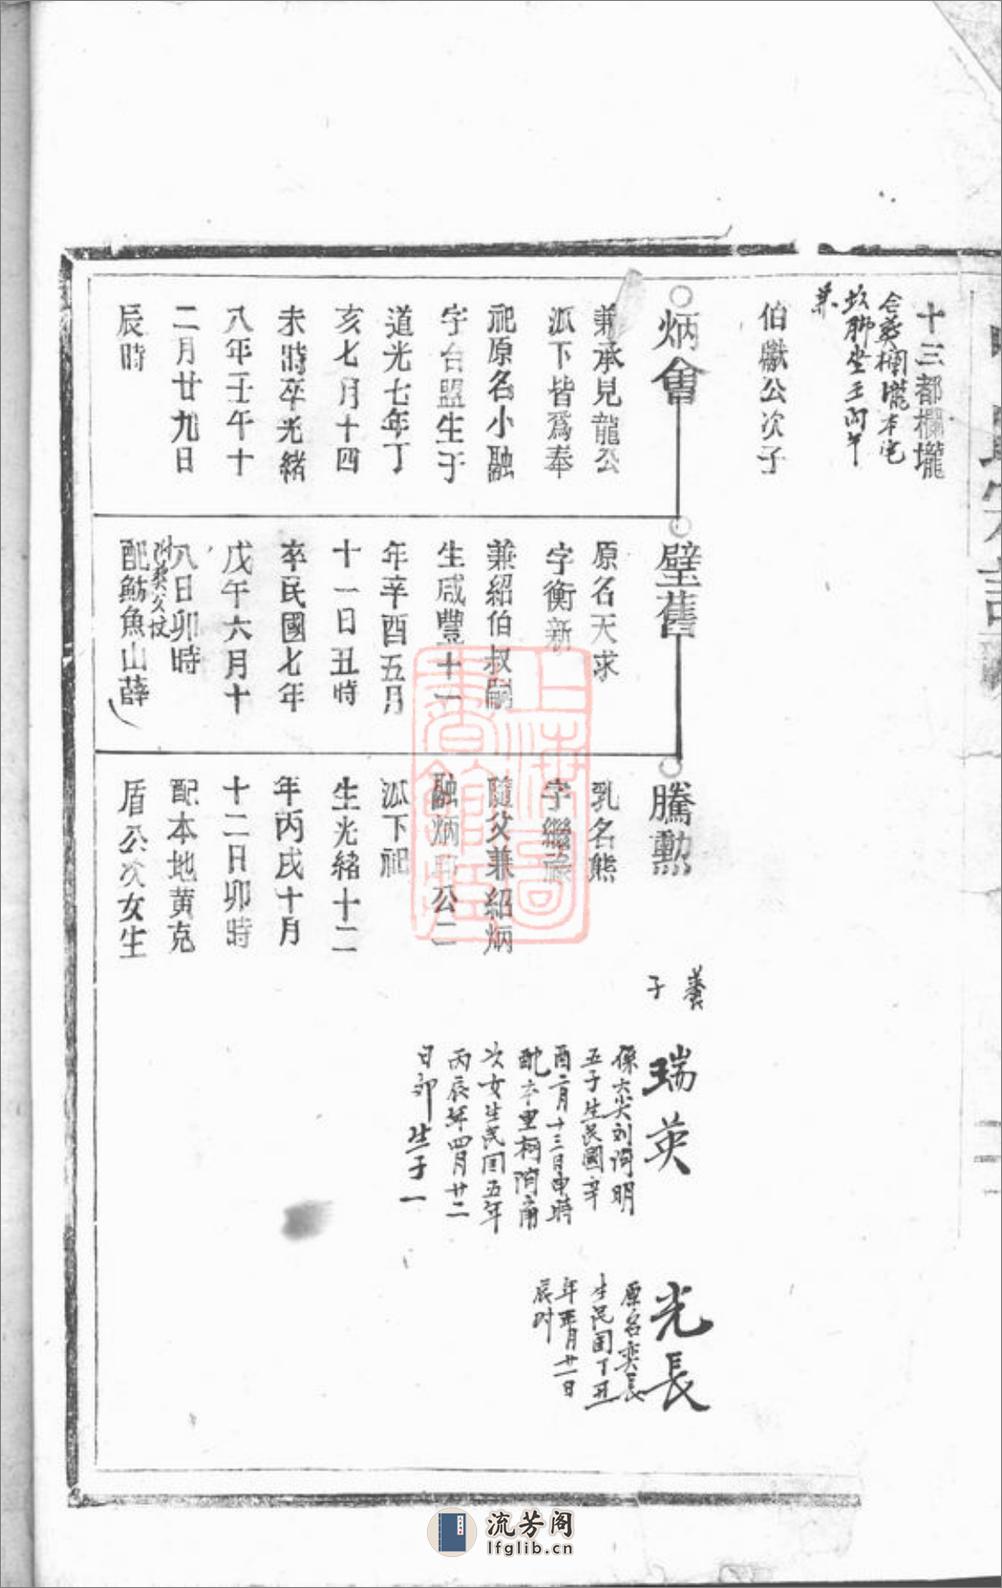 十三都欄壠
合葬欄壠本宅
坎脚坐壬向午
兼
伯獻公次子
炳會
兼承見龍公
派下皆爲奉
祀原名小融
字台盟生于
道光七年丁
亥七月十四
未時卒光緒
八年壬午十
二月廿九日
辰時
璧舊
原名天求
字衡新
兼紹伯叔嗣
生咸豐十一
年辛酉五月
十一日丑時
卒民國七年
戊午六月十
八日卯時
附葬父坟
配魴魚山薛
騰勲
乳名熊
字繼
隨父兼紹炳
融炳 公二
派下祀
生光緒十二
年丙戌十月
十二日卯時
配本地黄克
盾公次女生
養子
瑞英
係六尖刘 明
五子生民國辛
酉二月十三日申時
配本里柯
次女生民国五年
丙辰年四月廿二
日卯 生子一
光長
原名奕長
生民国丁丑
年 月廿一日
辰时
上海圖書館藏
流芳阁
lfglib.cn